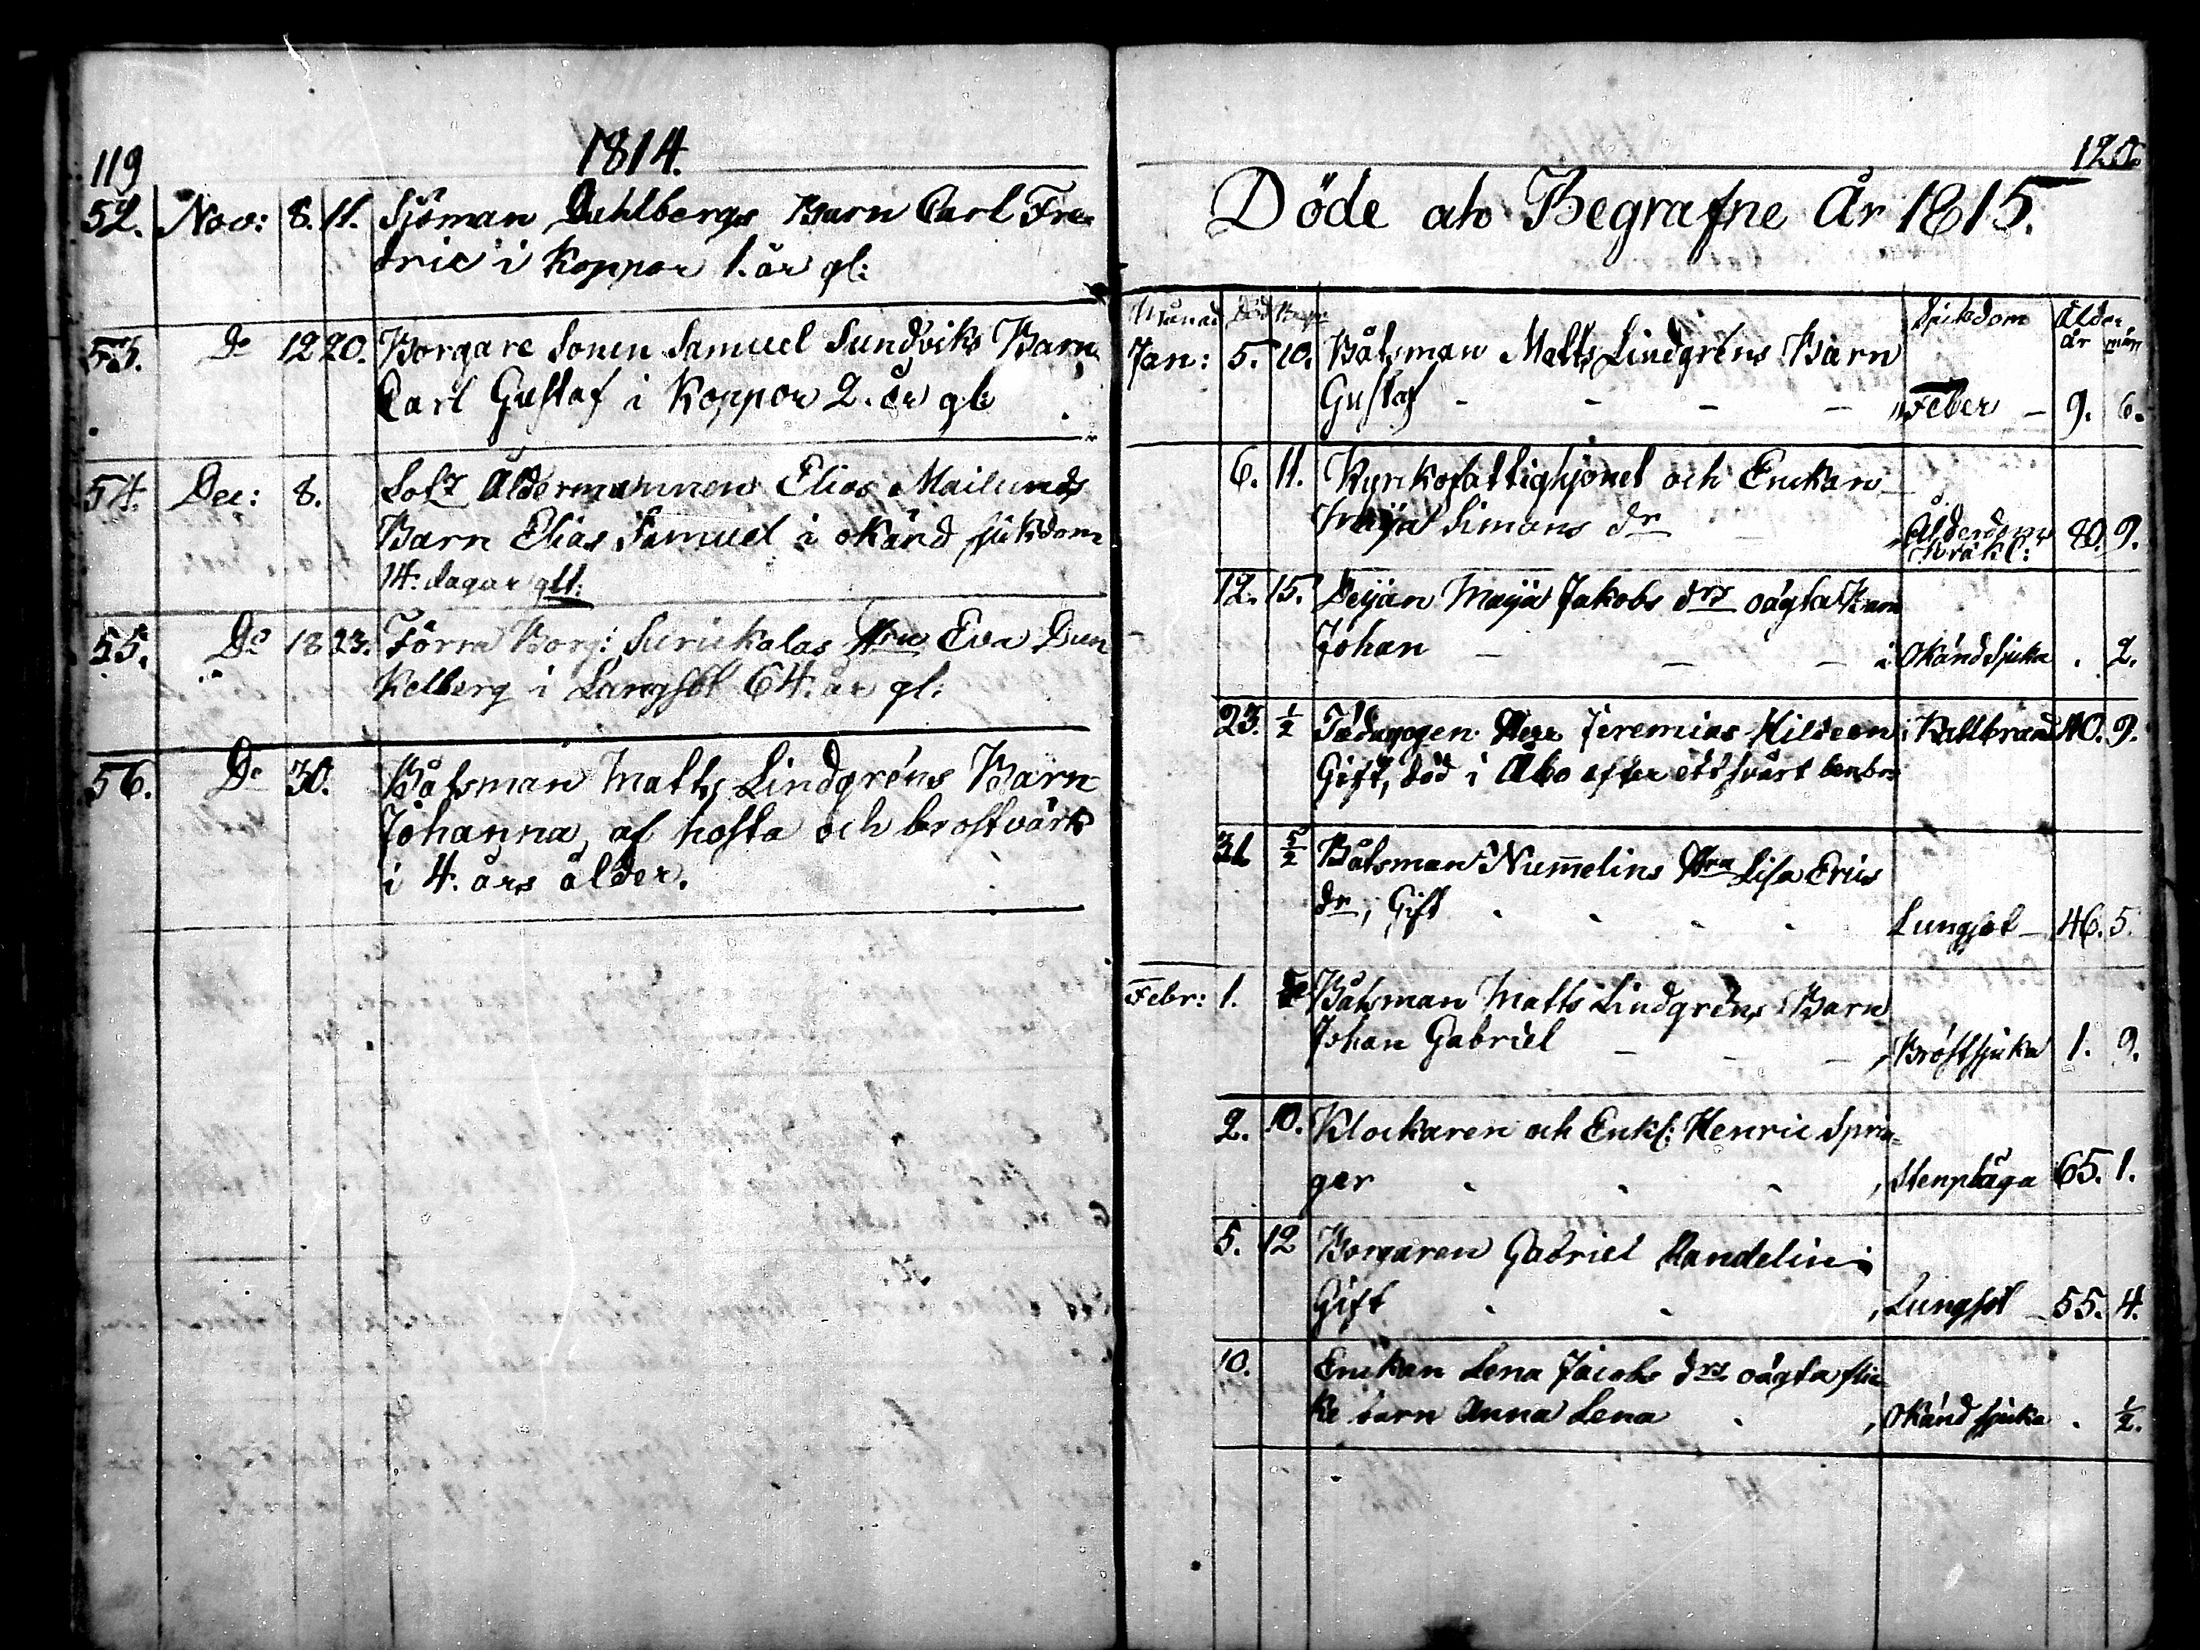 119
1814.
52. Nov: 8. 11. Sjöman Dahlbergs Barn Carl Fre-
dric i Koppor 1. år gl:
53. Do 12 20. Borgare Sonen Samuel Sundviks Barn
Carl Gustaf i Koppor 2. år gl:
54. Dec: 8. Åldermannen Elias Mailunds
Barn Elias Samuel i okänd sjukdom
14. dagar gll:
55. Do 18 23. Förra Borg: Hru Eva Dun
kelberg i Lungsot 64. år gl:
56. Do 30. Båtsman Matts Lindgréns Barn
Johanna, af hosta och brostvärk
i 4. års ålder.
120
Döde och Begrafne År 1815.
Månad Död Begr: Sjukdom Ålder
år mån
Jan: 5. 10. Båtsman Matts Lindgréns Barn
Gustaf - - - - Feber - 9. 6.
6. 11. Kyrkofattighjonet och Enkan
Maja Simons dr - Ålderdoms 80. 9.
Kräkl:
12. 15. Deijan Maja Jakobs drs oägta Barn
Johan - - - i Okänd Sjuka . 2.
23. 1/2 Pædagogen Herr Jeremias Hildeen i Kallbrand 40. 9.
Gift, död i Åbo efter ett svårt benbr:
31 5/2 Båtsman Numelins Hru Lisa Erics
dr, Gift Lungsot - 46. 5.
Febr: 1. Båtsman Matts Lindgréns Barn
Johan Gabriel - - - Bröstsjuka 1. 9.
2. 10. Klockaren och Enkl: Henric Sprin-
ger Stenplåga 65. 1.
5. 12 Borgaren Gabriel Randelin
Gift Lungsot - 55. 4.
10. Enckan Lena Jacobs drs oägta flic-
ke barn Anna Lena Okänd sjuka . 1/2.